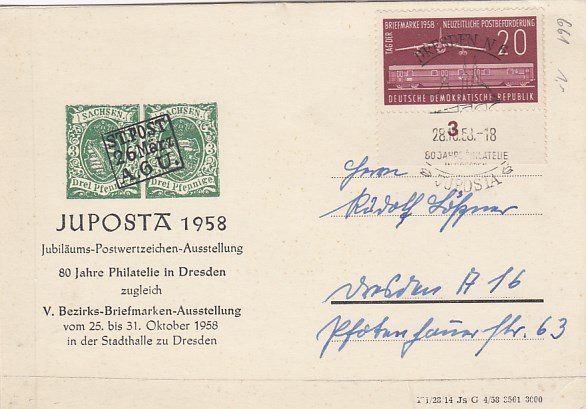 TAG DER
BRIEFMARKE 1958 · NEUZEITLICHE POSTBEFÖRDERUNG
20
DEUTSCHE DEMOKRATISCHE REPUBLIK
DRESDEN N
3
28.10.58.-18
80 JAHRE PHILATELIE
JUPOSTA
661
SACHSEN SACHSEN
ST. POST
26 März
A.G.U.
Drei Pfennige Drei Pfennige
JUPOSTA 1958
Jubiläums-Postwertzeichen-Ausstellung
80 Jahre Philatelie in Dresden
zugleich
V. Bezirks-Briefmarken-Ausstellung
vom 25. bis 31. Oktober 1958
in der Stadthalle zu Dresden
Herrn
Rudolf
Dresden A 16
Pfotenhauer Str. 63
28 14 Js G 4/58 2561 3000